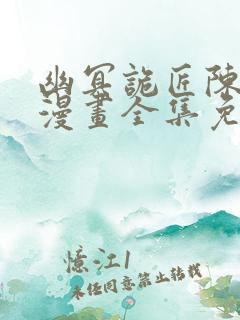 幽冥詭匠陳
漫畫全集免
憶江1
未径同意禁止转载